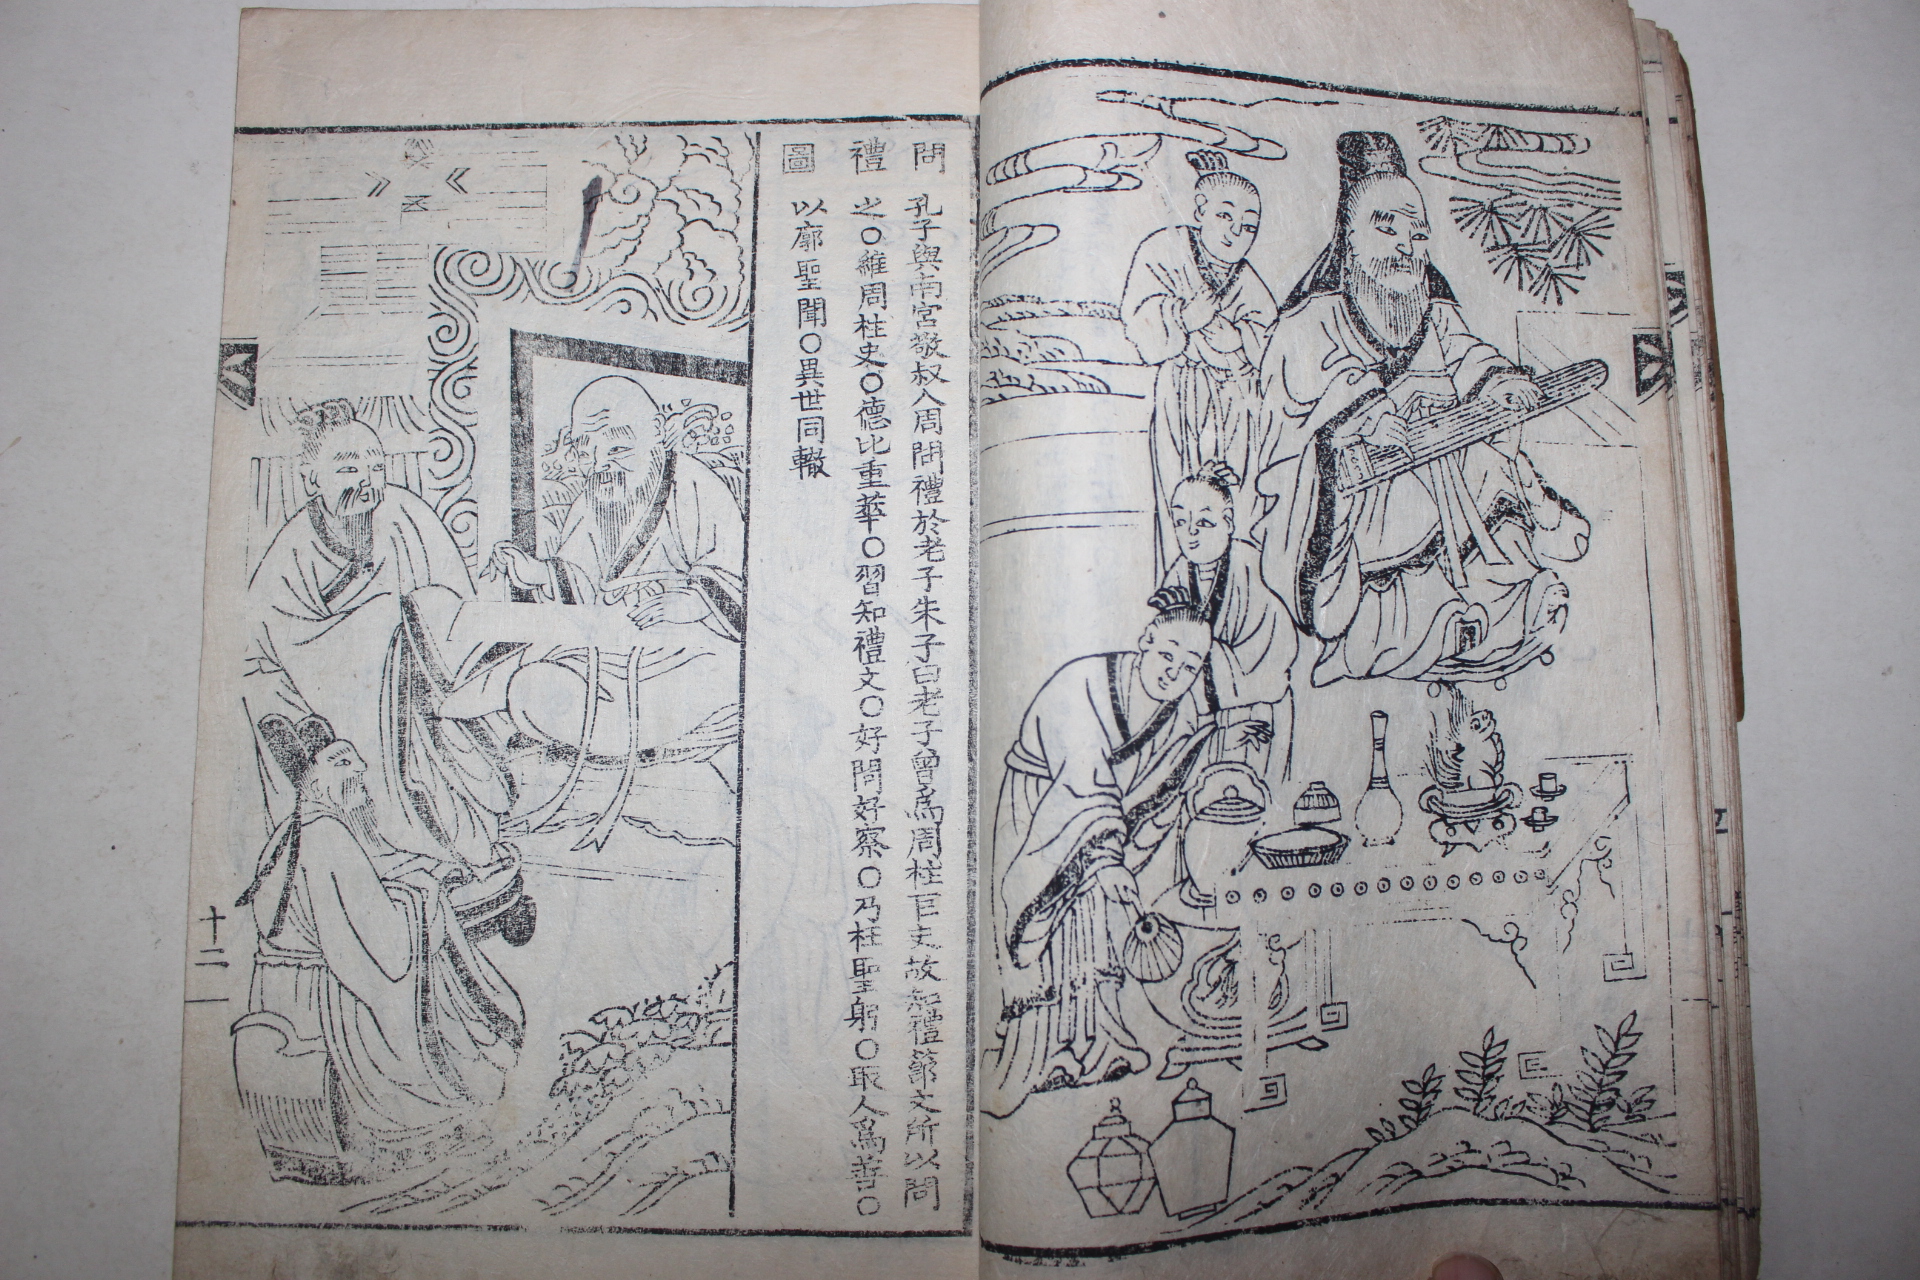 問禮圖
孔子與南宮敬叔入周問禮於老子朱子曰老子曾爲周柱下史故知禮節文所以問
之○維周柱史○德比重華○習知禮文○好問好察○乃枉聖躬○取人爲善○
以廓聖聞○異世同轍
十二